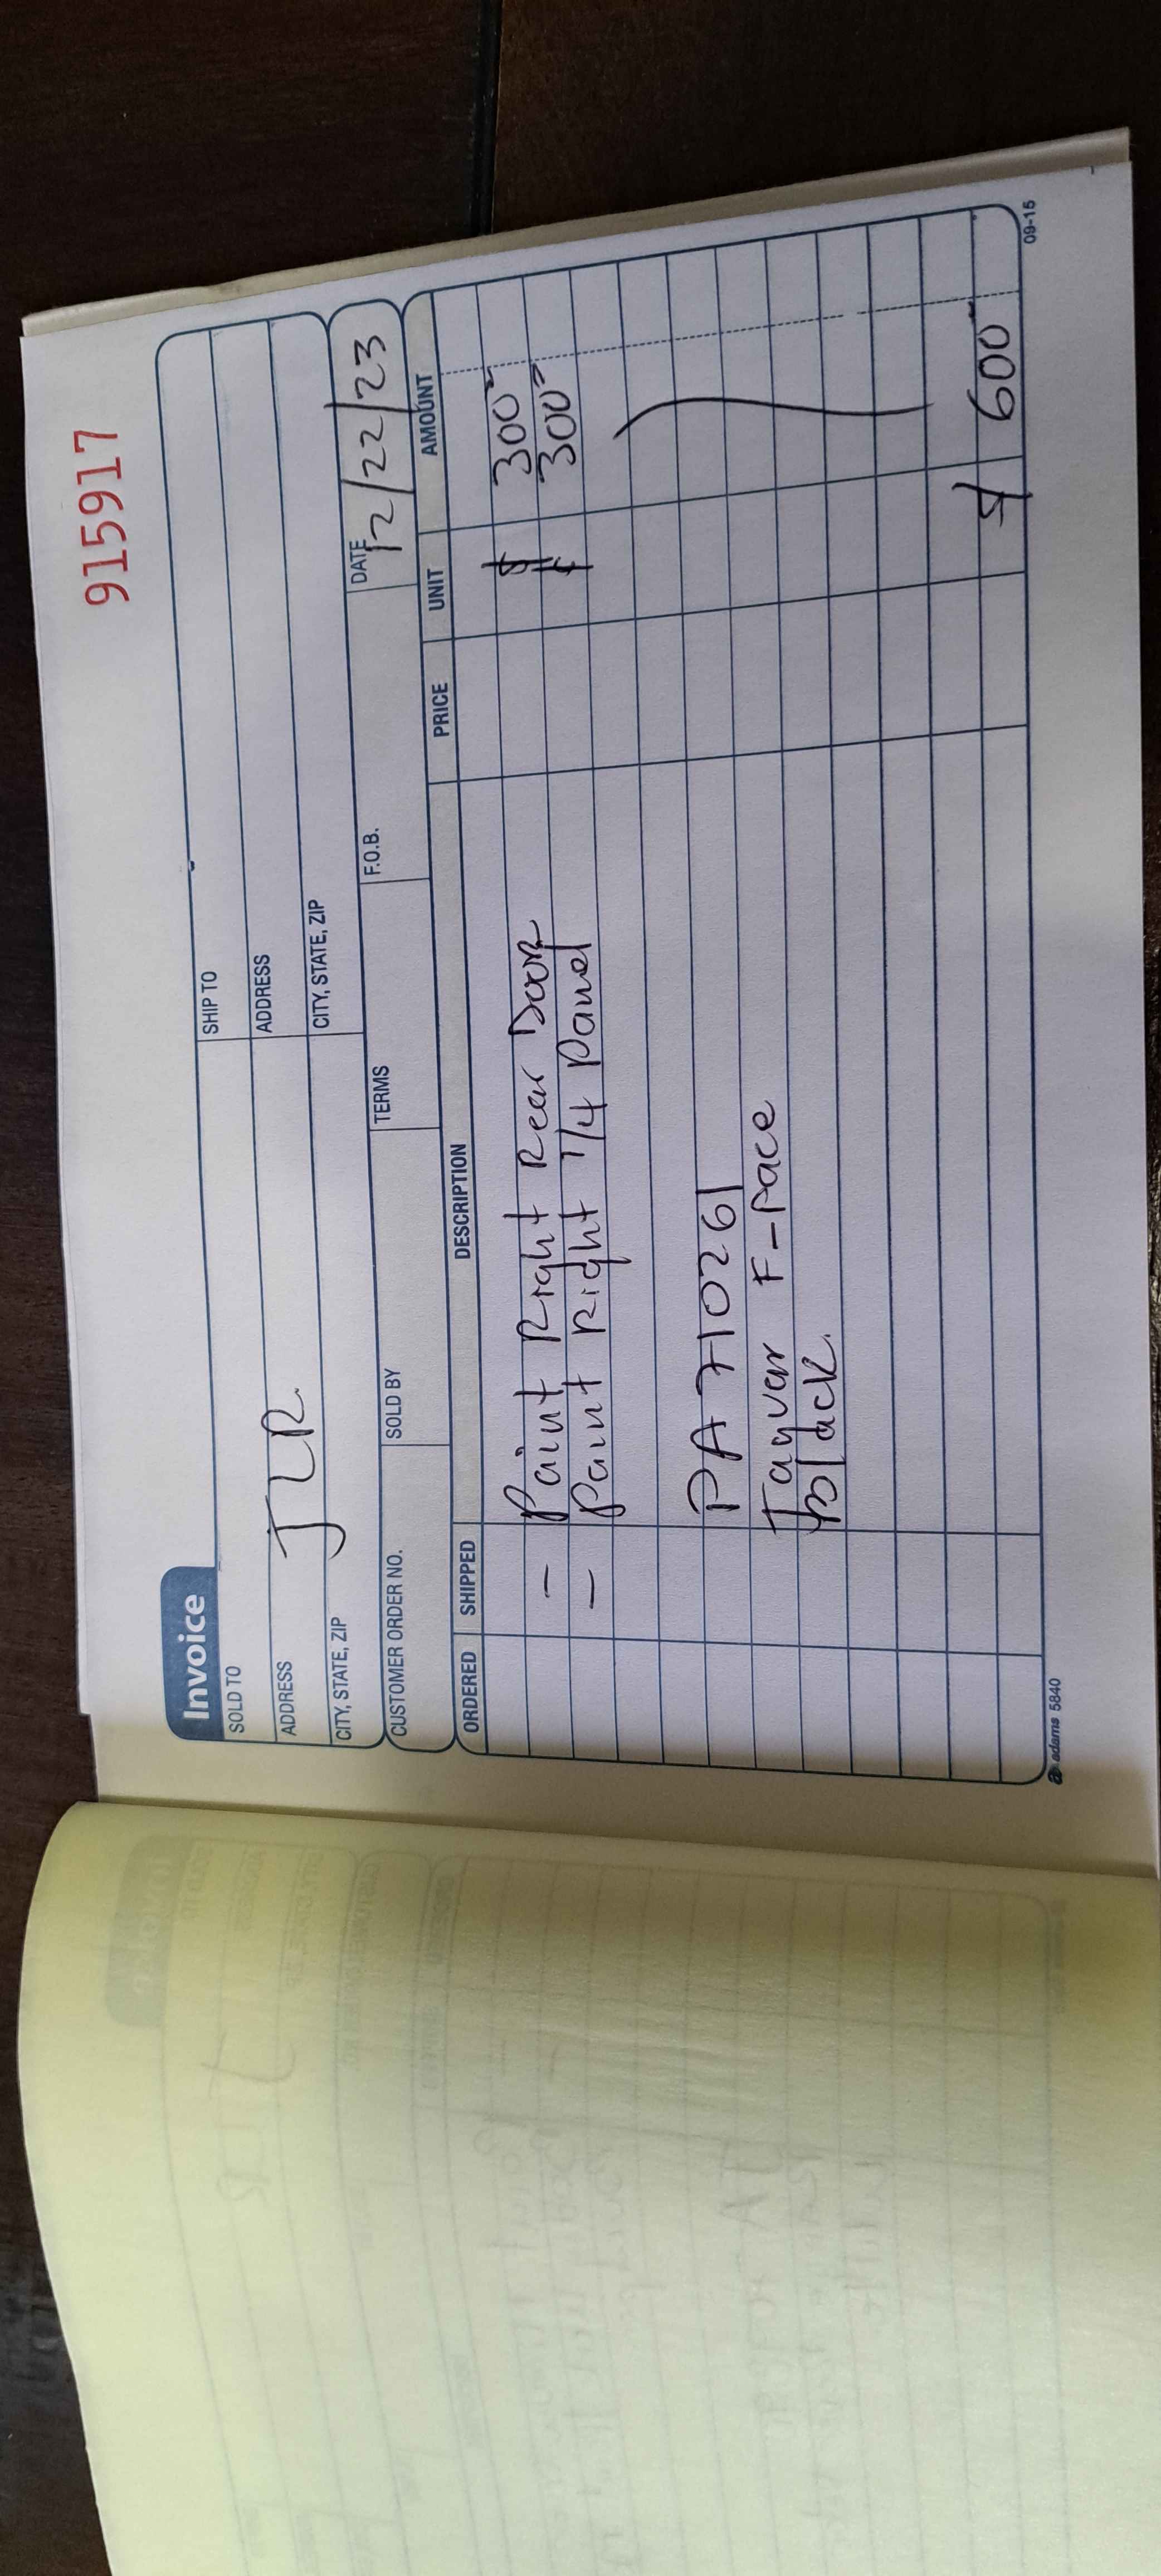 915917
Invoice
SOLD TO
SHIP TO
ADDRESS
ADDRESS
JLR
CITY, STATE, ZIP
CITY, STATE, ZIP
CUSTOMER ORDER NO.
SOLD BY
TERMS
F.O.B.
DATE
12/22/23
ORDERED
SHIPPED
DESCRIPTION
PRICE
UNIT
AMOUNT
- Paint Right Rear Door $ 300
- Paint Right 1/4 Panel $ 300
PA71026
Jaguar F-Pace
Black.
$ 600
adams 5840
09-15